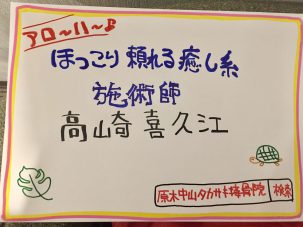 アロ〜ハ〜♪
ほっこり頼れる癒し系
施術師
高崎喜久江
原木中山タカサキ接骨院 検索